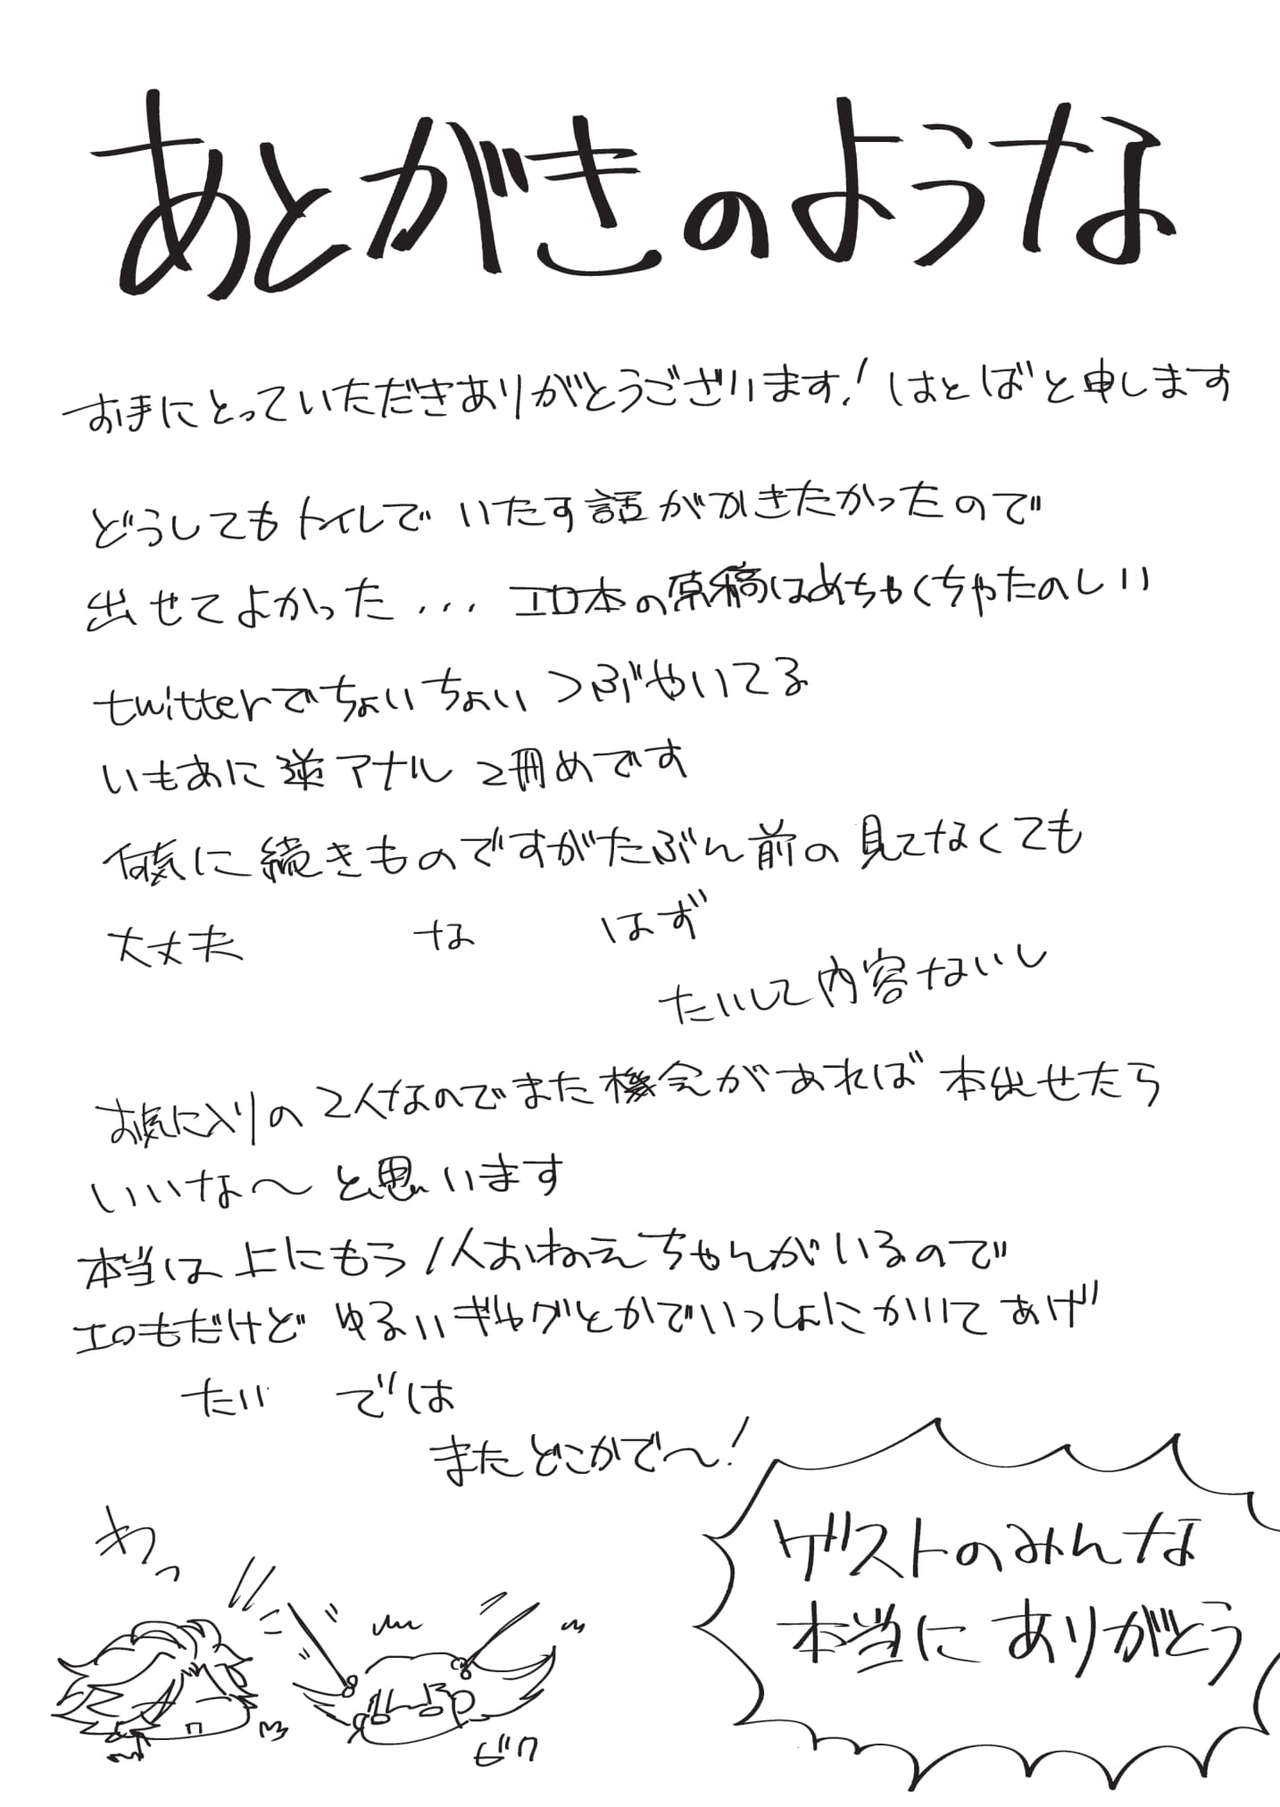 あとがきのような
お手にとっていただきありがとうございます! はとばと申します
どうしてもトイレで いたす話がかきたかったので
出せてよかった... エロ本の原稿はめちゃくちゃたのしい
twitterでちょいちょい つぶやいてる
いもあに逆アナル 2冊めです
何気に続きものですがたぶん前の見てなくても
大丈夫 な はず
たいして内容ないし
お気に入りの2人なのでまた機会があれば 本出せたら
いいな〜と思います
本当は上にもう1人おねえちゃんがいるので
エロもだけど ゆるいギャグとかでいっしょにかいてあげ
たい では
またどこかで〜!
わっ
ゲストのみんな
本当に ありがとう